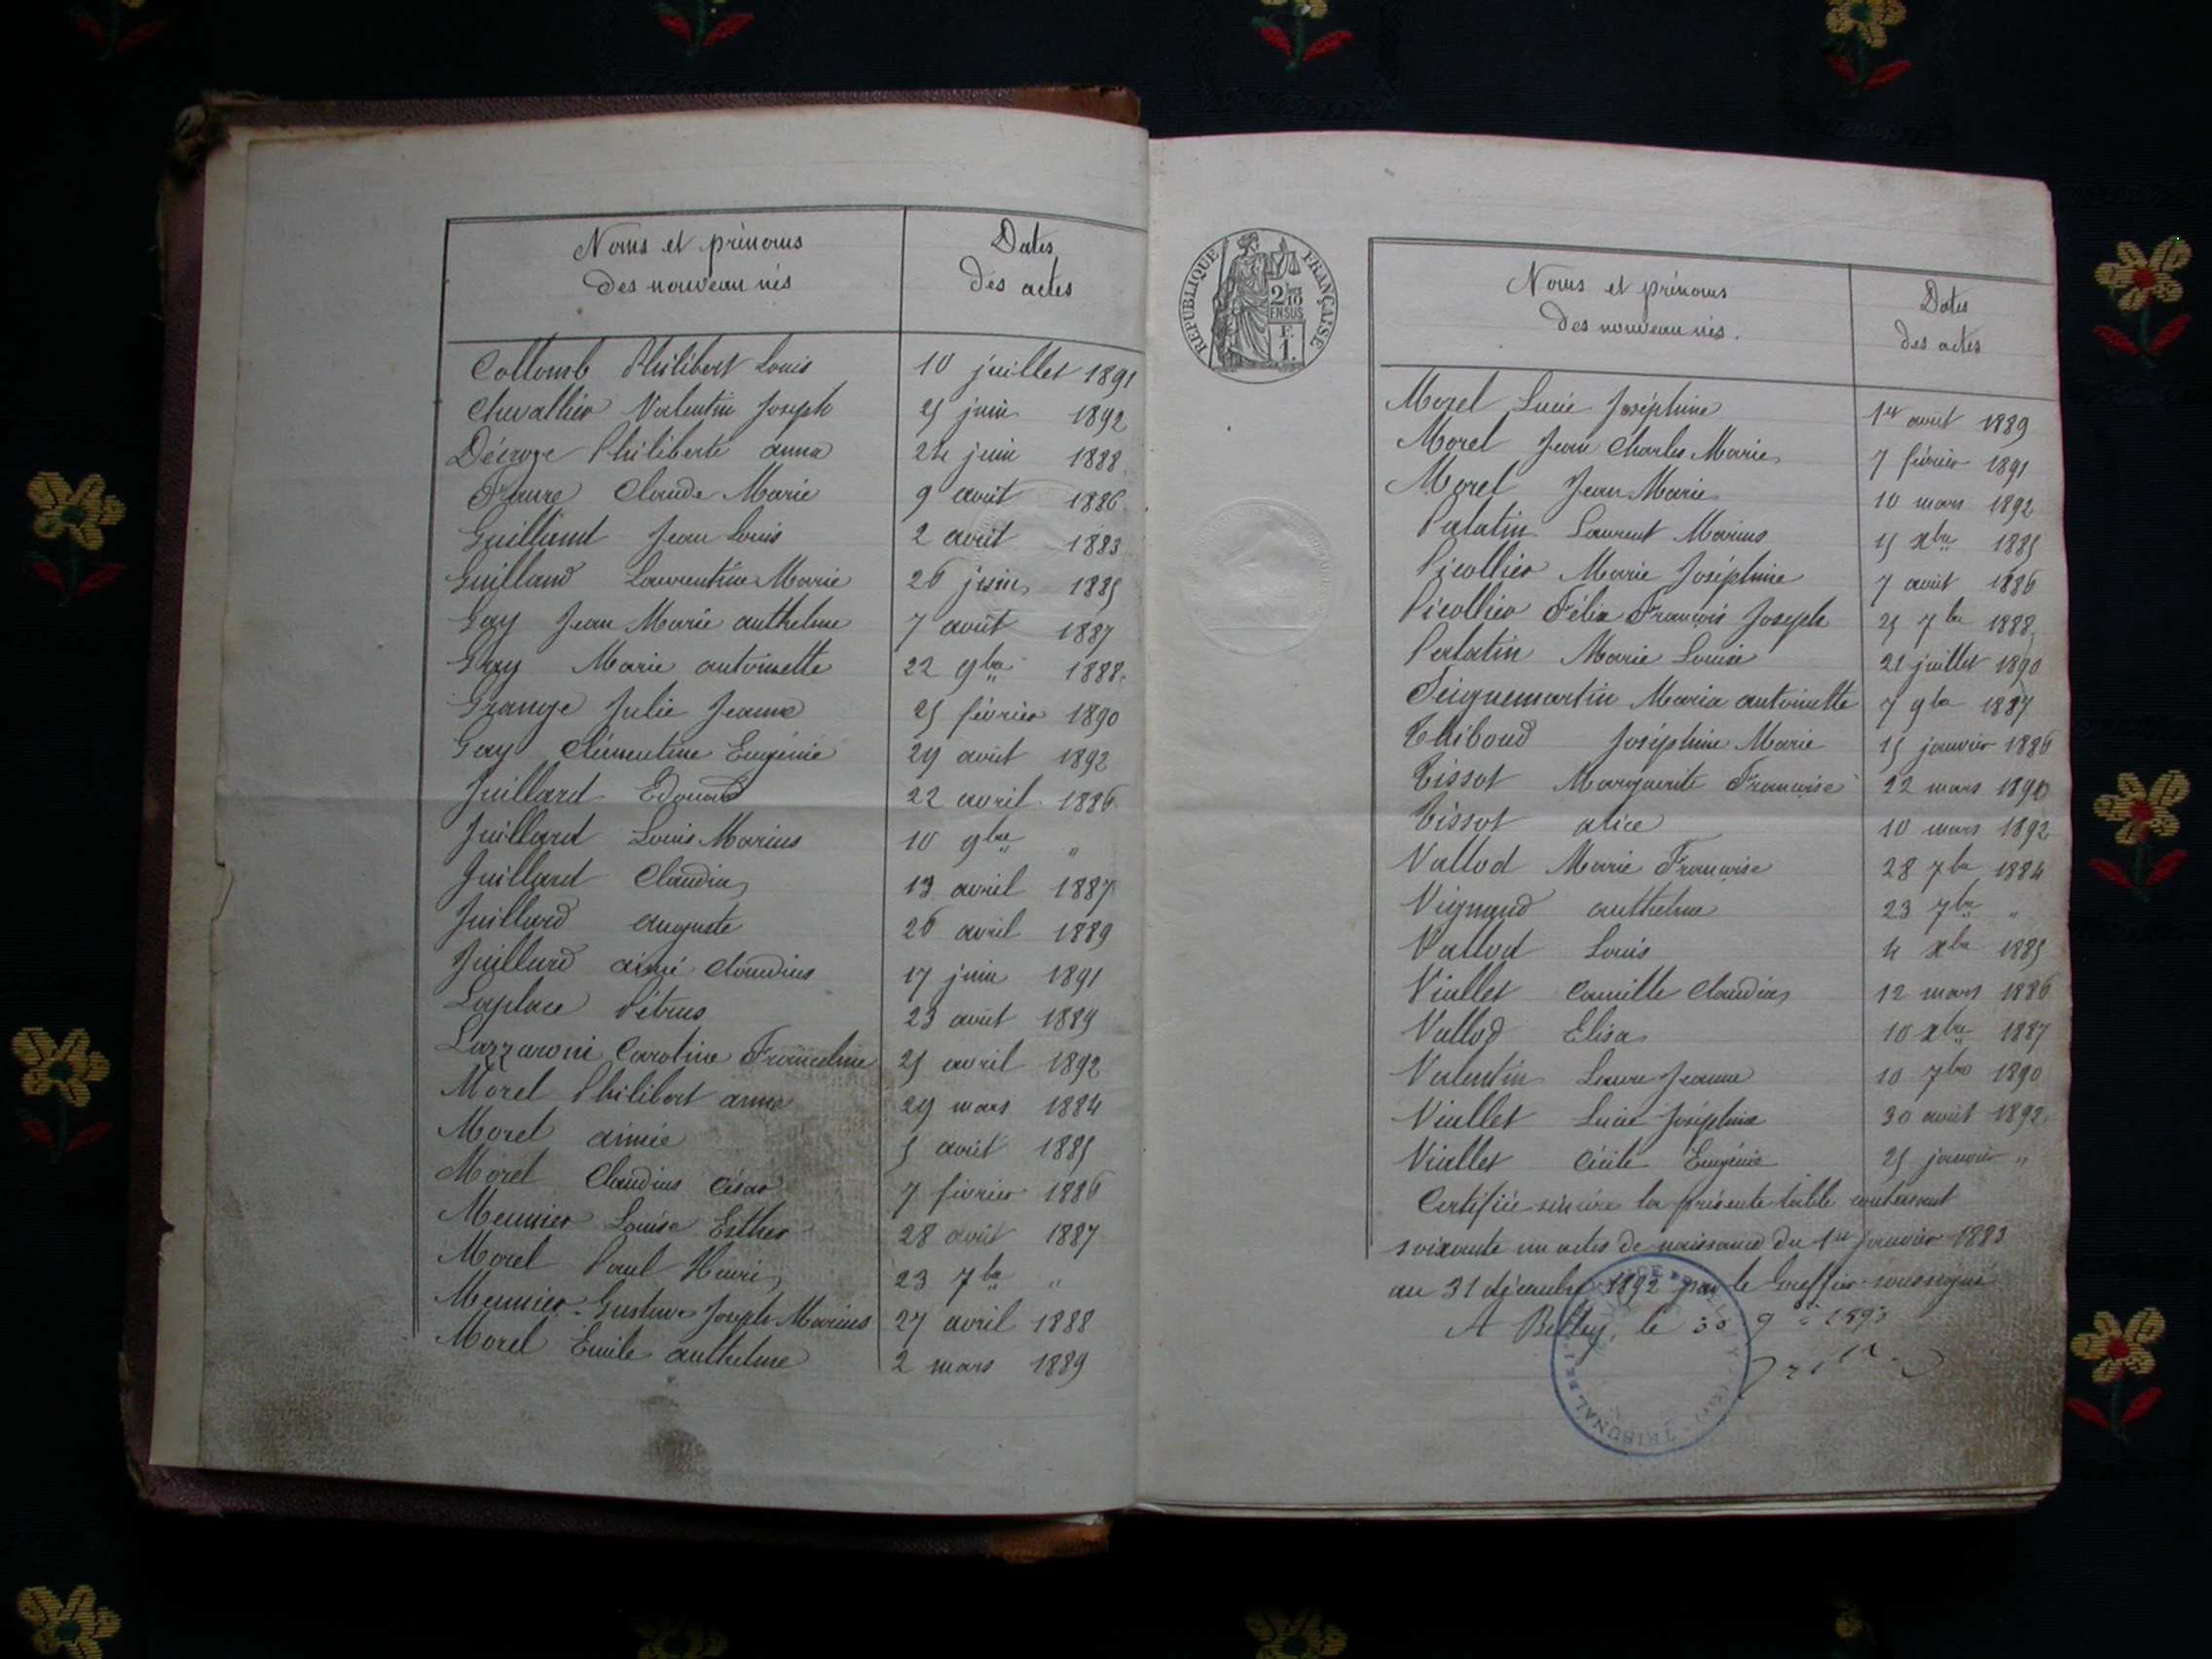 Noms et prénoms
des nouveau nés
Dates
des actes
Collomb Philibert Louis 10 juillet 1891
Chevallier Valentin Joseph 25 juin 1892
Décroze Philiberte anna 24 juin 1888
Faure Claude Marie 9 avril 1886
Guilland Jean Louis 2 avril 1883
Guilland Laurentine Marie 26 juin 1885
Gay Jean Marie anthelme 7 août 1887
Gay Marie antoinette 22 9bre 1888
Grange Julie Jeanne 25 février 1890
Gay Clémentine Eugénie 29 août 1892
Juillard Edouard 22 avril 1886
Juillard Louis Marius 10 9bre "
Juillard Claudius 13 avril 1887
Juillard auguste 26 avril 1889
Juillard aimé Claudius 17 juin 1891
Laplace Pétrus 23 août 1889
Lazzaroni Caroline Franceline 25 avril 1892
Morel Philibert anna 29 mars 1884
Morel aimée 5 août 1885
Morel Claudius César 7 février 1886
Meunier Louise Esther 28 août 1887
Morel Paul Henri 23 7bre "
Meunier Gustave Joseph Marius 27 avril 1888
Morel Emile anthelme 2 mars 1889
REPUBLIQUE FRANÇAISE
2/10
EN SUS
F.
1.
Noms et prénoms
des nouveau nés.
Dates
des actes
Morel Lucie Joséphine 1er août 1889
Morel Jean Charles Marie 7 février 1891
Morel Jean Marie 10 mars 1892
Palatin Laurent Marius 15 xbre 1885
Picollier Marie Joséphine 7 août 1886
Picollier Félix François Joseph 25 7bre 1888
Palatin Marie Louise 21 juillet 1890
Seignemartin Maria antoinette 7 9bre 1887
Thiboud Joséphine Marie 15 janvier 1886
Tissot Marguerite Françoise 22 mars 1890
Tissot alice 10 mars 1892
Vallod Marie Françoise 28 7bre 1884
Vignand anthelme 23 7bre "
Vallod Louis 4 xbre 1885
Viallet Camille Claudius 12 mars 1886
Vallod Elisa 10 xbre 1887
Valentin Laure Jeanne 10 7bre 1890
Viallet Lucie Joséphine 30 août 1892
Viallet Cécile Eugénie 25 janvier "
Certifiée sincère la présente table contenant
soixante un actes de naissance du 1er janvier 1883
au 31 décembre 1892 par le Greffier soussigné
A Belley, le 30 9bre 1893
TRIBUNAL DE 1